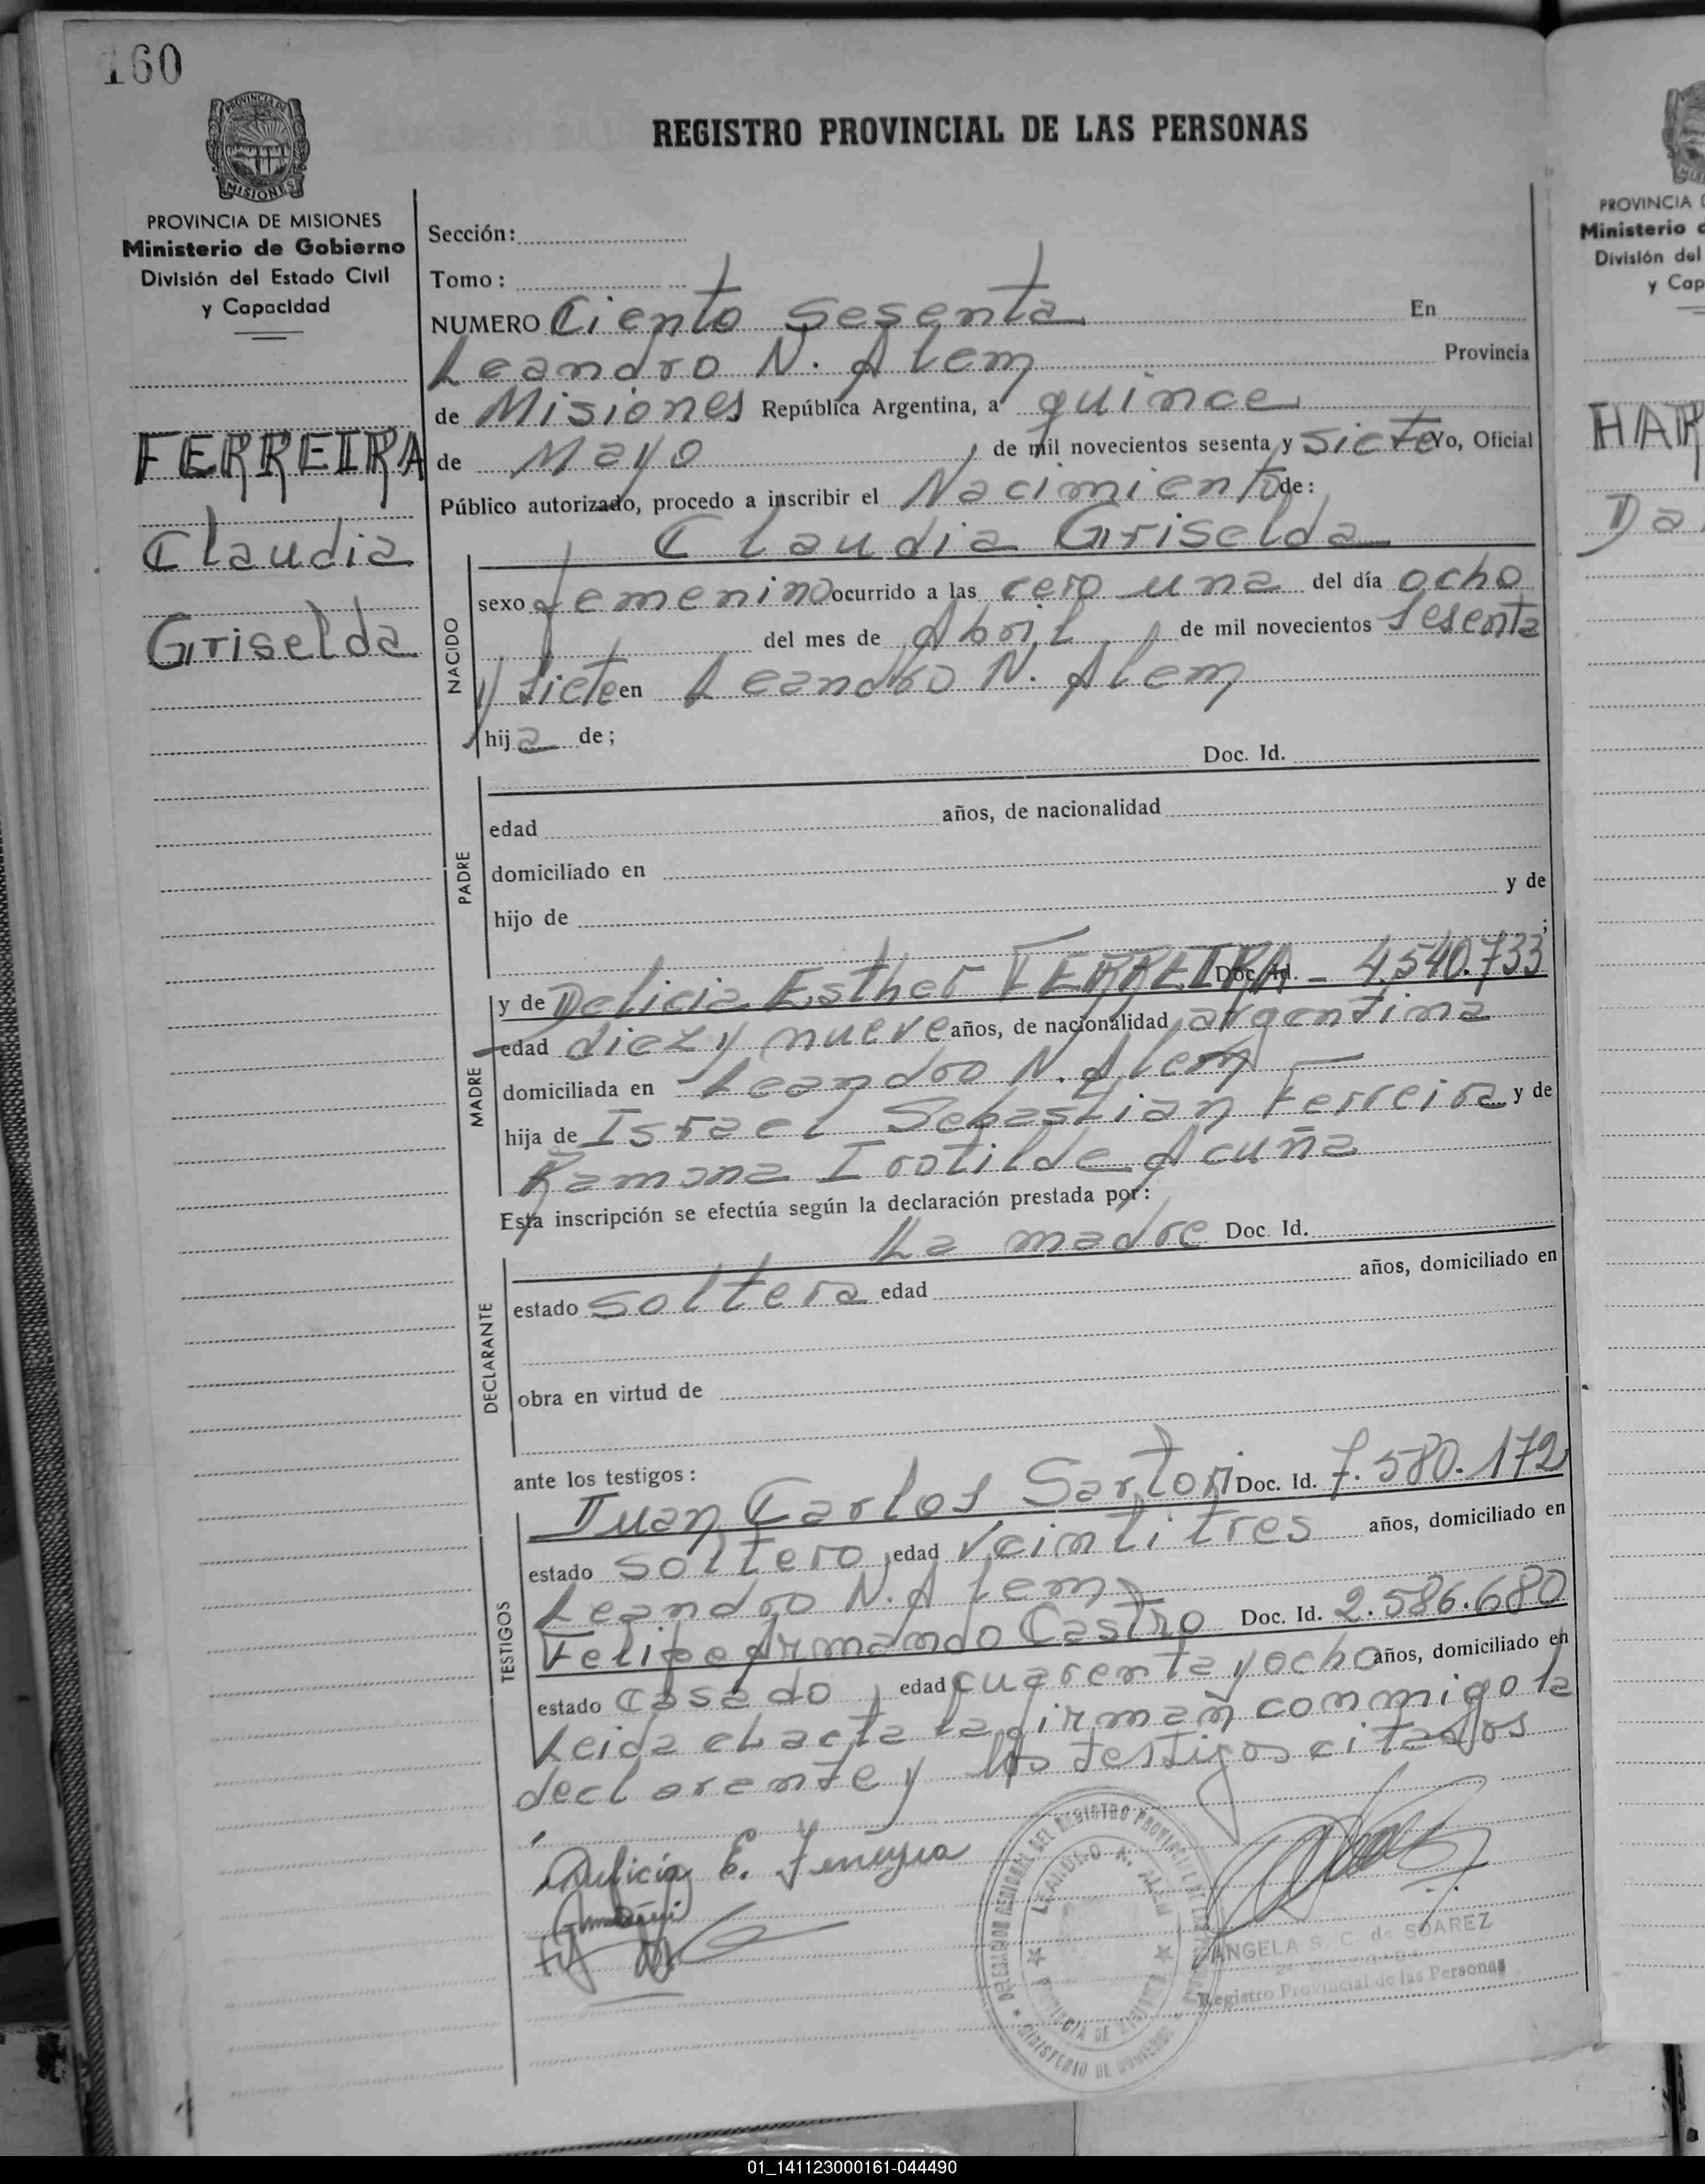 160
PROVINCIA DE
MISIONES
REGISTRO PROVINCIAL DE LAS PERSONAS
PROVINCIA DE MISIONES
Ministerio de Gobierno
División del Estado Civil
y Capacidad
FERREIRA
Claudia
Griselda
Sección:
Tomo :
NUMERO Ciento sesenta En
Leandro N. Alem Provincia
de Misiones República Argentina, a quince
de Mayo, de mil novecientos sesenta y siete Yo, Oficial
Público autorizado, procedo a inscribir el Nacimiento de:
Claudia Griselda
NACIDO
sexo femenino ocurrido a las cero una del día ocho
del mes de Abril, de mil novecientos sesenta
y siete en Leandro N. Alem
hija de;
Doc. Id.
PADRE
edad años, de nacionalidad
domiciliado en
hijo de y de
;
MADRE
y de Delicia Esther FERREIRA Doc. Id. - 4.540.733
edad diez y nueve años, de nacionalidad argentina
domiciliada en Leandro N. Alem
hija de Israel Sebastian Ferreira y de
Ramona Irotilde Acuña
Esta inscripción se efectúa según la declaración prestada por:
La madre Doc. Id.
DECLARANTE
estado soltera edad años, domiciliado en
obra en virtud de
ante los testigos:
TESTIGOS
Juan Carlos Sartori Doc. Id. 7.580.172
estado soltero, edad veintitres años, domiciliado en
Leandro N. Alem
Felipe Armando Castro Doc. Id. 2.586.680
estado casado, edad cuarenta y ocho años, domiciliado en
Leida el acta la firman conmigo la
declarante y los testigos citados
Delicia E. Ferreyra
DELEGACION REGIONAL DEL REGISTRO PROVINCIAL DE LAS PERSONAS
LEANDRO N. ALEM
PROVINCIA DE MISIONES
MINISTERIO DE GOBIERNO
ANGELA S. C. de SOAREZ
Registro Provincial de las Personas
PROVINCIA D
Ministerio d
División del
y Cap
HAR
Da
01_141123000161-044490